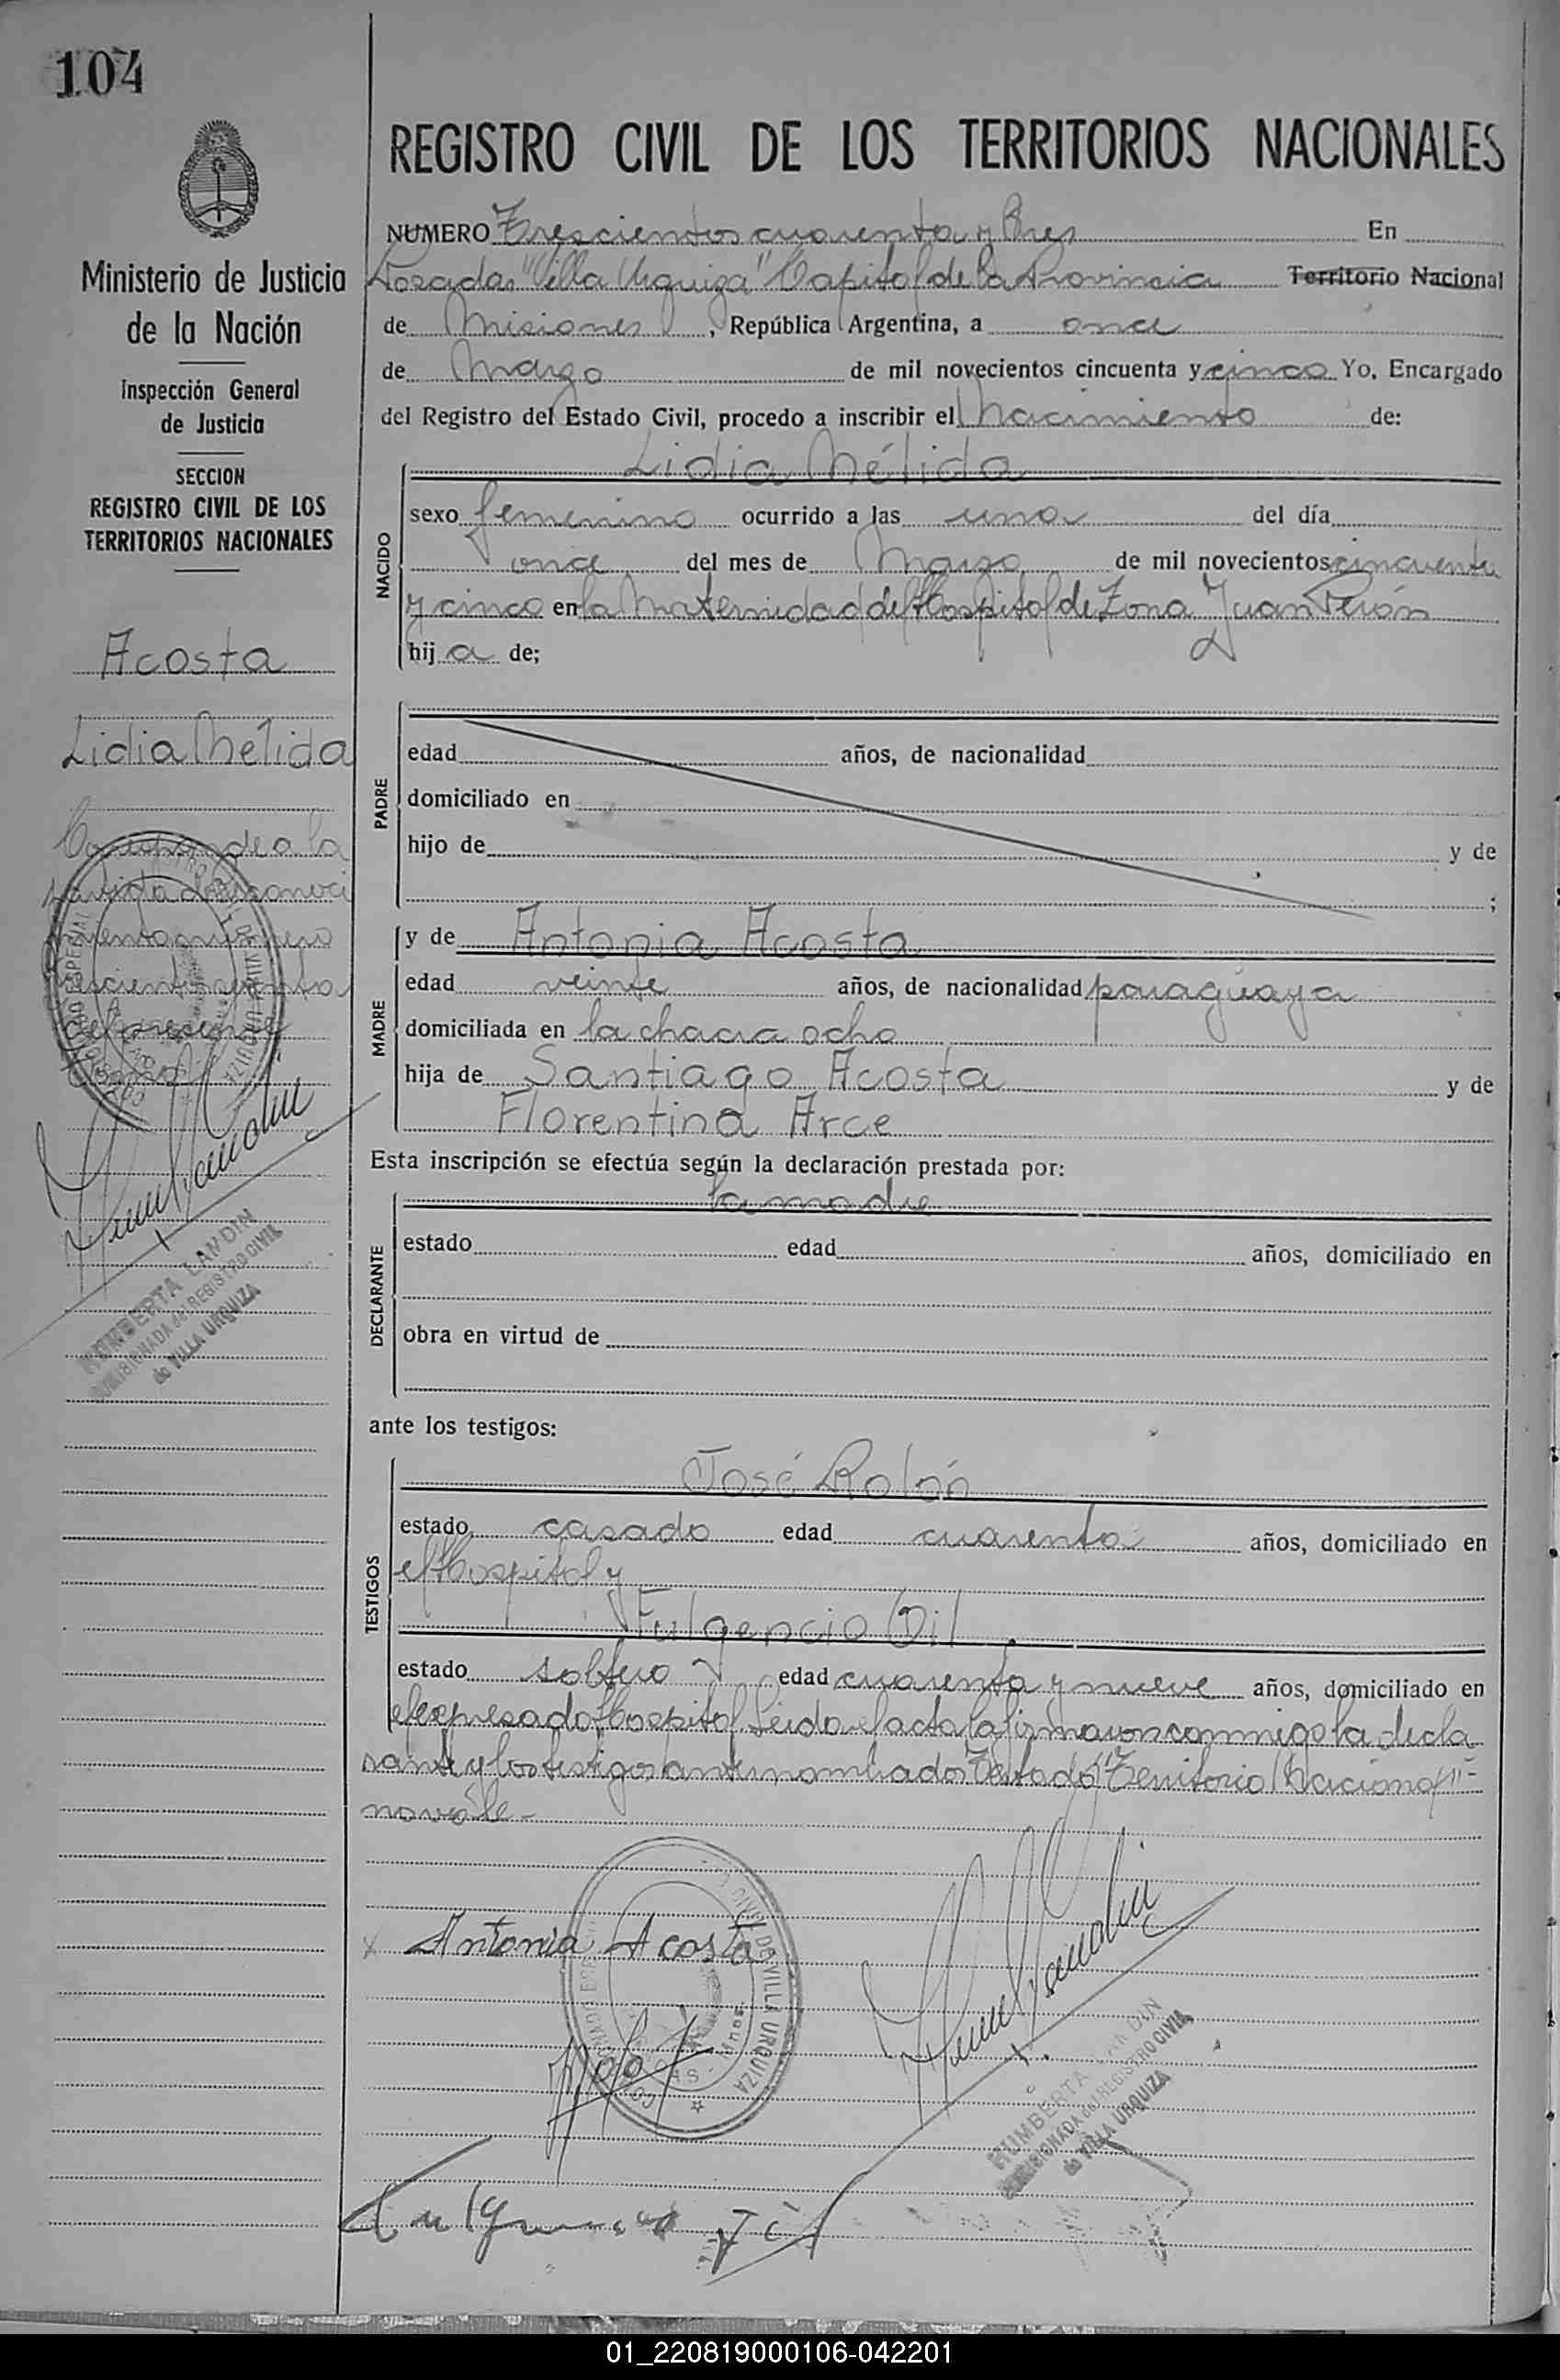 104
REGISTRO CIVIL DE LOS TERRITORIOS NACIONALES
Ministerio de Justicia
de la Nación
Inspección General
de Justicia
SECCION
REGISTRO CIVIL DE LOS
TERRITORIOS NACIONALES
Acosta
Lidia Nélida
Corresponde a la
HUMBERTA LANDIN
COMISIONADA del REGISTRO CIVIL
de VILLA URQUIZA
NUMERO Trescientos cuarenta y tres En
Posadas "Villa Urquiza" Capital de la Provincia Territorio Nacional
de Misiones, República Argentina, a once
de Marzo de mil novecientos cincuenta y cinco Yo, Encargado
del Registro del Estado Civil, procedo a inscribir el Nacimiento de:
Lidia Nélida
NACIDO
sexo femenino ocurrido a las una del día
once del mes de Marzo de mil novecientos cincuenta
y cinco en la Maternidad del Hospital de Zona Juan Perón
hij a de;
PADRE
edad años, de nacionalidad
domiciliado en
hijo de y de
;
MADRE
y de Antonia Acosta
edad veinte años, de nacionalidad paraguaya
domiciliada en la chacra ocho
hija de Santiago Acosta y de
Florentina Arce
Esta inscripción se efectúa según la declaración prestada por:
la madre
DECLARANTE
estado edad años, domiciliado en
obra en virtud de
ante los testigos:
TESTIGOS
José Rolón
estado casado edad cuarenta años, domiciliado en
el Hospital y
Fulgencio Gil
estado soltero edad cuarenta y nueve años, domiciliado en
el expresado Hospital Leida el acta la firmaron conmigo la decla
rante y los testigos antenombrados Testado "Territorio Nacional"-
no vale.-
x Antonia Acosta
DE VILLA URQUIZA
HUMBERTA LANDIN
COMISIONADA del REGISTRO CIVIL
de VILLA URQUIZA
01_220819000106-042201